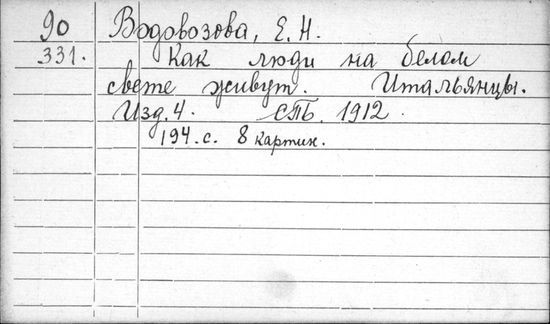 90 Водовозова, Е. Н.
331. Как люди на белом
свете живут. Итальянцы.
Изд. 4. СПБ. 1912.
194. с. 8 картин.